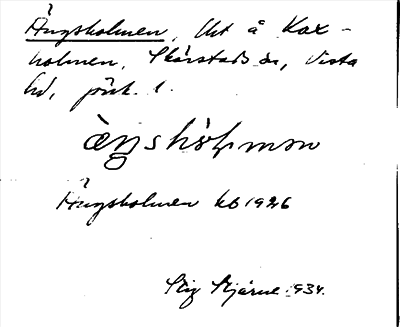 Ängsholmen, Ukt å Kax-
holmen, Skärstads sn, Vista
hd, Jönk. l.
àŋshòlmən
Ängsholmen kb 1926
Stig Stjärne 1934.